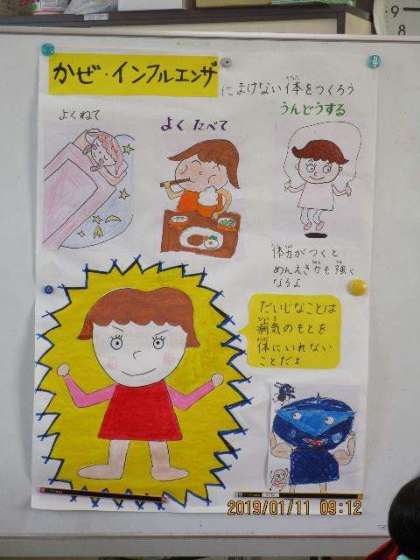 かぜ・インフルエンザ
にまけない体をつくろう
からだ
よくねて
よくたべて
うんどうする
体力がつくと
めんえき力も強く
なるよ
だいじなことは
病気のもとを
体にいれない
ことだよ
2019/01/11 09:12